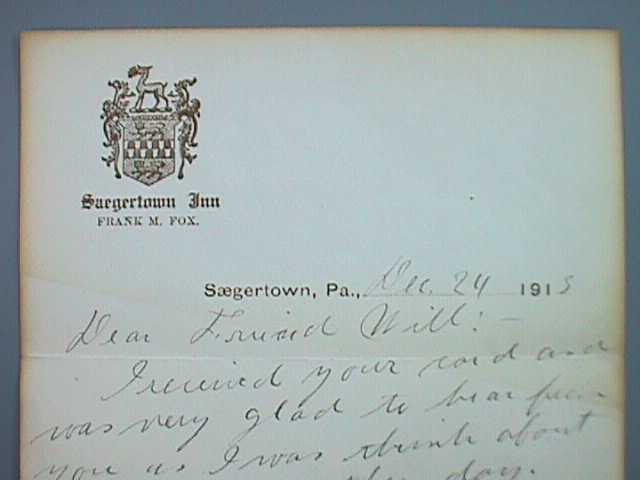 Saegertown Inn
FRANK M. FOX.
Sægertown, Pa., Dec. 24 1913
Dear Friend Will:—
I received your card and
was very glad to hear from
you as I was think about
the day.